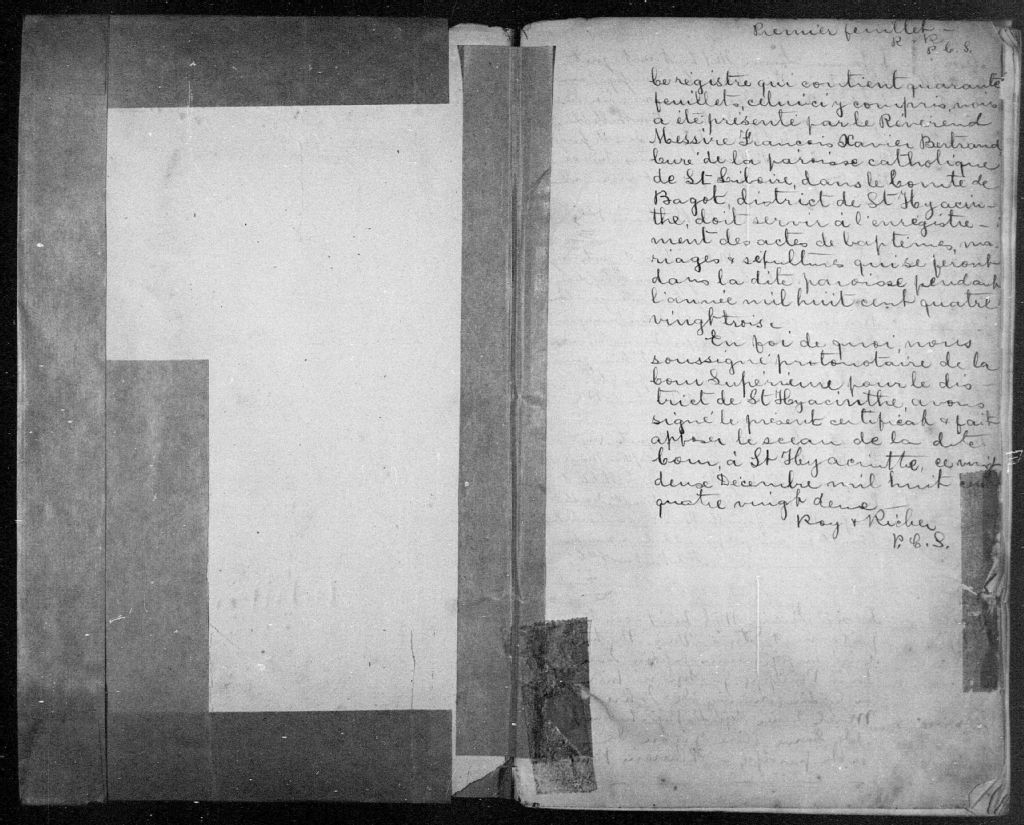 Premier feuillet —
R & R
P. C. S.
Ce régistre qui contient quarante
feuillets, celui ci y compris, nous
a été présenté par le Révérend
Messire Francois Xavier Bertrand
Curé de la paroisse catholique
de St Liboire, dans le Comté de
Bagot, district de St Hyacin-
the, doit servir à l'enregistre-
ment des actes de baptêmes, ma-
riages & sépultures qui se feront
dans la dite paroisse pendant
l'année mil huit cent quatre
vingt trois.
En foi de quoi, nous
soussigné protonotaire de la
Cour Supérieure pour le dis-
trict de St Hyacinthe, avons
signé le présent certificat & fait
apposer le sceau de la dite
Cour, à St Hyacinthe, ce vingt
deux Décembre mil huit cent
quatre vingt deux
Roy & Richer
P. C. S.